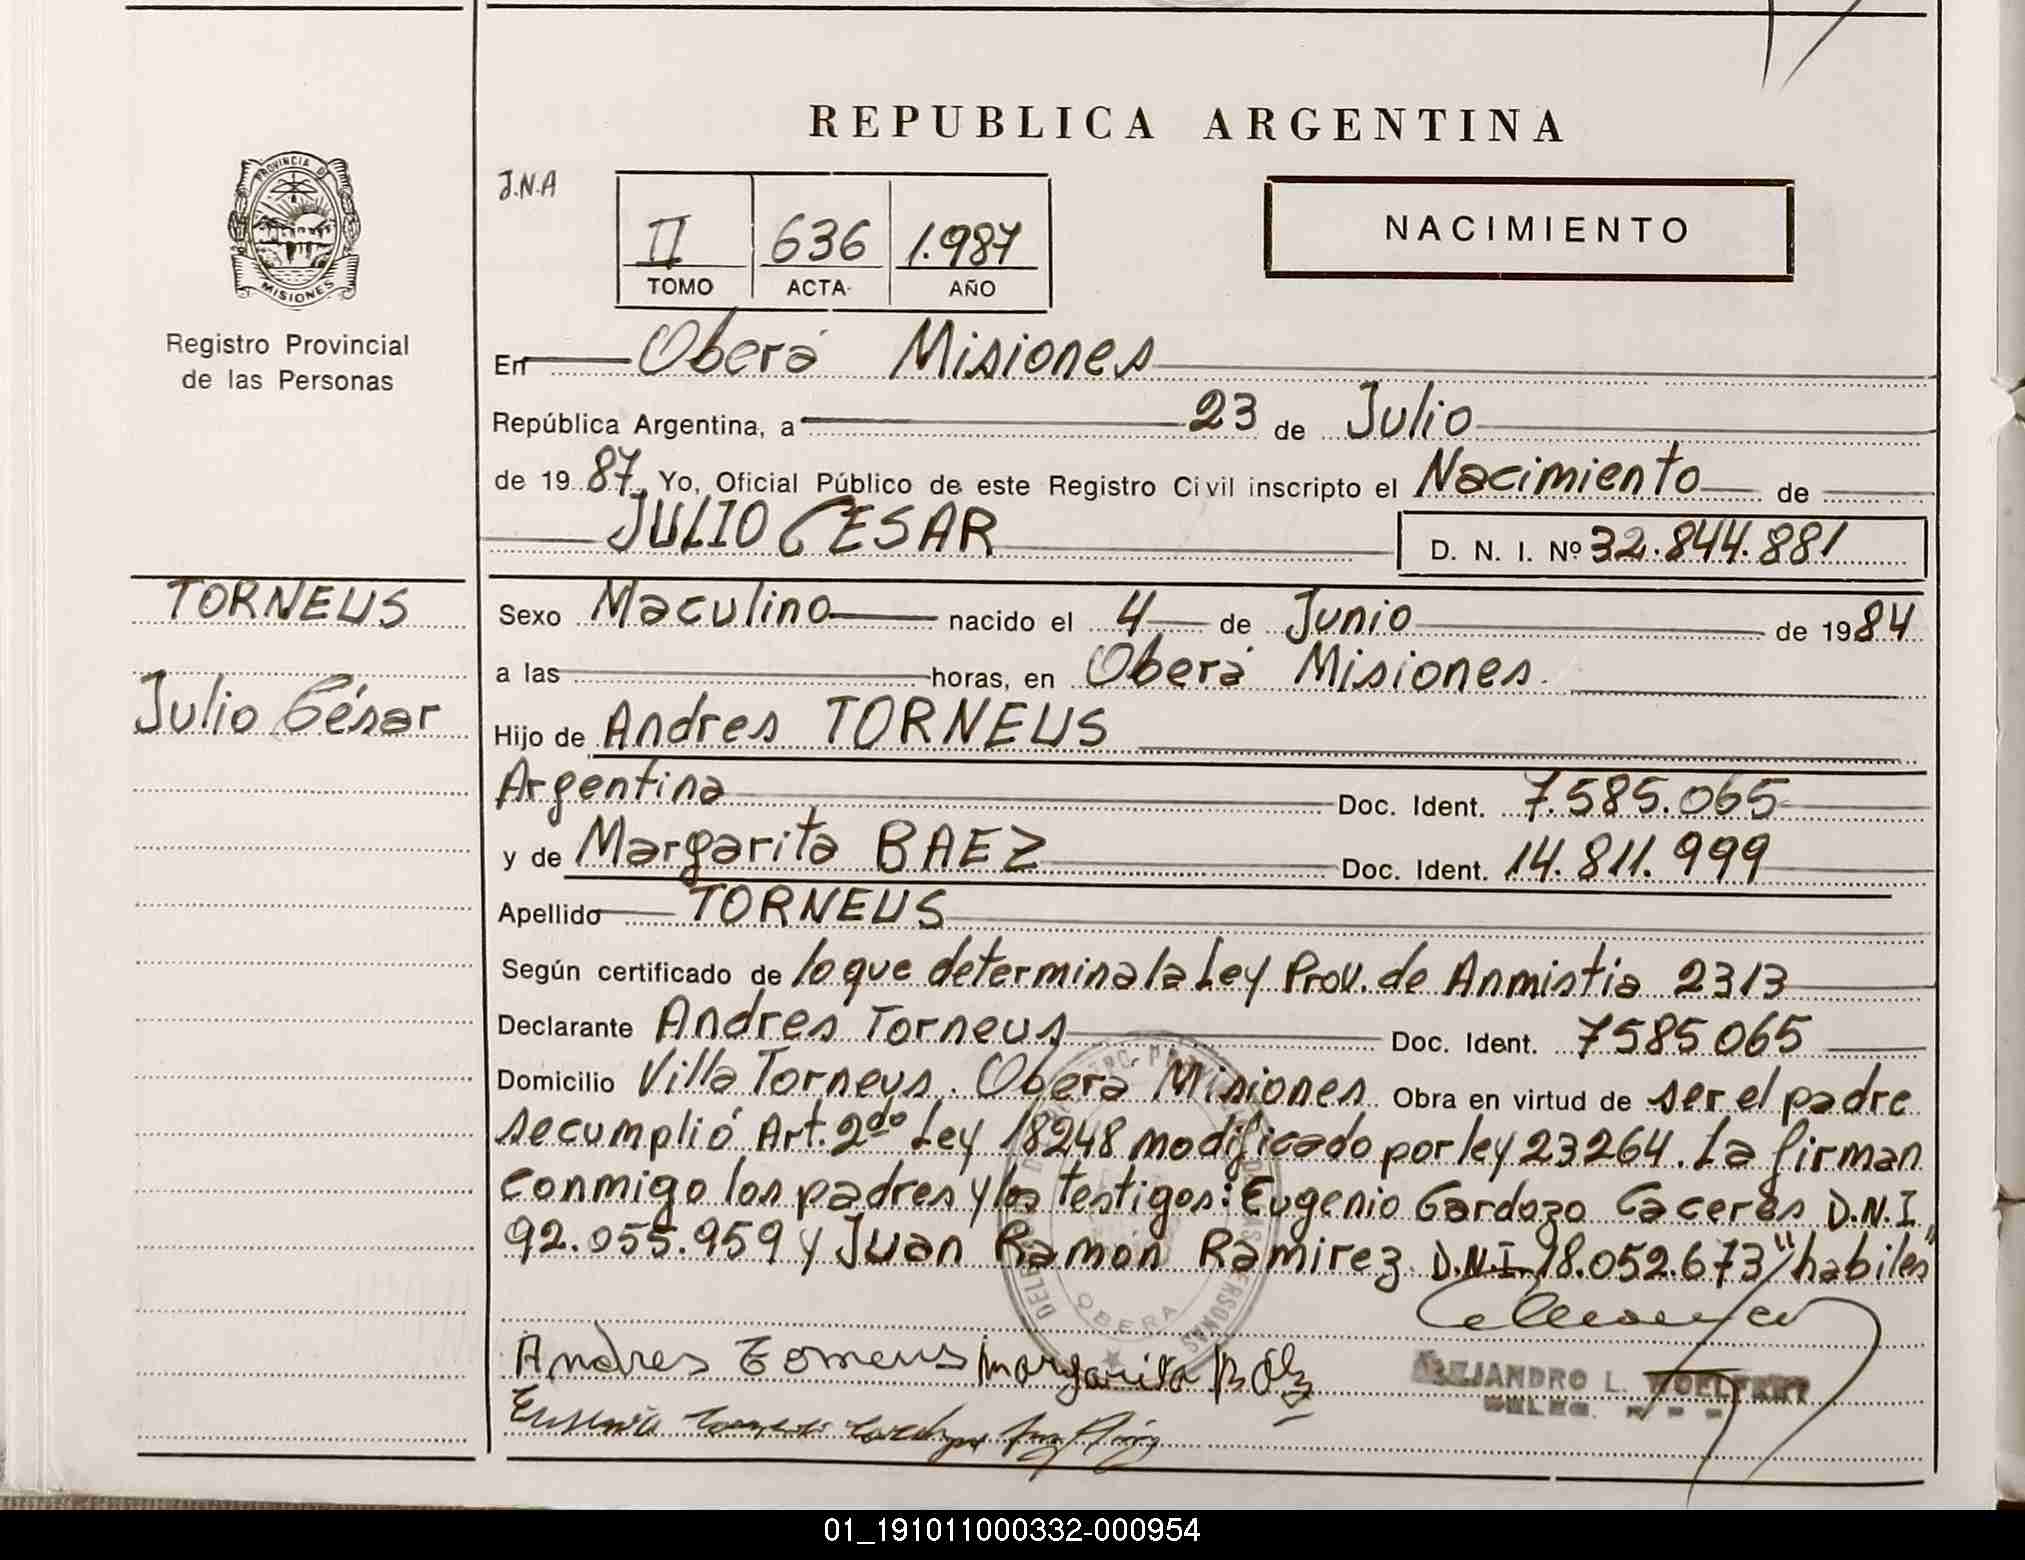 REPUBLICA ARGENTINA
PROVINCIA D
MISIONES
Registro Provincial
de las Personas
J.N.A
II 636 1.987
TOMO ACTA AÑO
NACIMIENTO
En Oberá Misiones
República Argentina, a 23 de Julio
de 19 87 Yo, Oficial Público de este Registro Civil inscripto el Nacimiento de
JULIO CESAR D. N. I. Nº 32.844.881
TORNEUS
Julio César
Sexo Maculino nacido el 4 de Junio de 19 84
a las horas, en Oberá Misiones.
Hijo de Andres TORNEUS
Argentina Doc. Ident. 7.585.065
y de Margarita BAEZ Doc. Ident. 14.811.999
Apellido TORNEUS
Según certificado de lo que determina la Ley Prov. de Anmistia 2313
Declarante Andres Torneus Doc. Ident. 7585065
Domicilio Villa Torneus. Oberá Misiones Obra en virtud de ser el padre
se cumplió Art. 2do Ley 18248 modificado por ley 23264. La firman
conmigo los padres y los testigos: Eugenio Cardozo Caceres D.N.I
92.055.959 y Juan Ramón Ramirez D.N.I. 18.052.673 "habiles"
OBERA
Andres Torneus Margarita Báez
ALEJANDRO L.
01_191011000332-000954